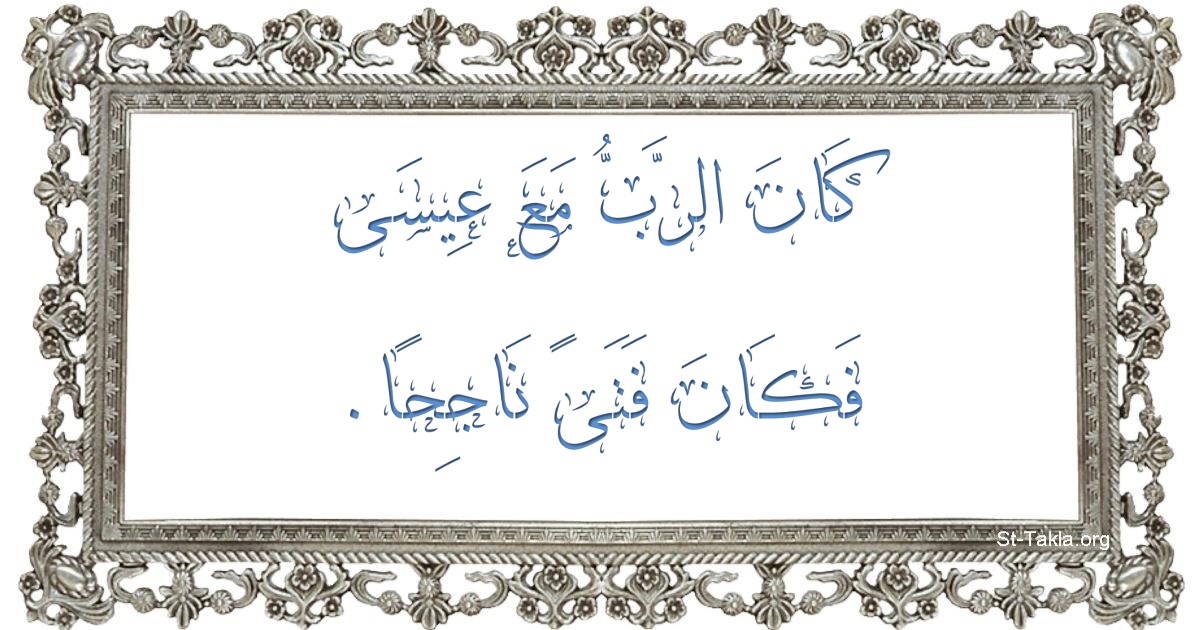 كَانَ الرَّبُّ مَعَ عِيسَى
فَكَانَ فَتَىً نَاجِحًا .
St-Takla.org